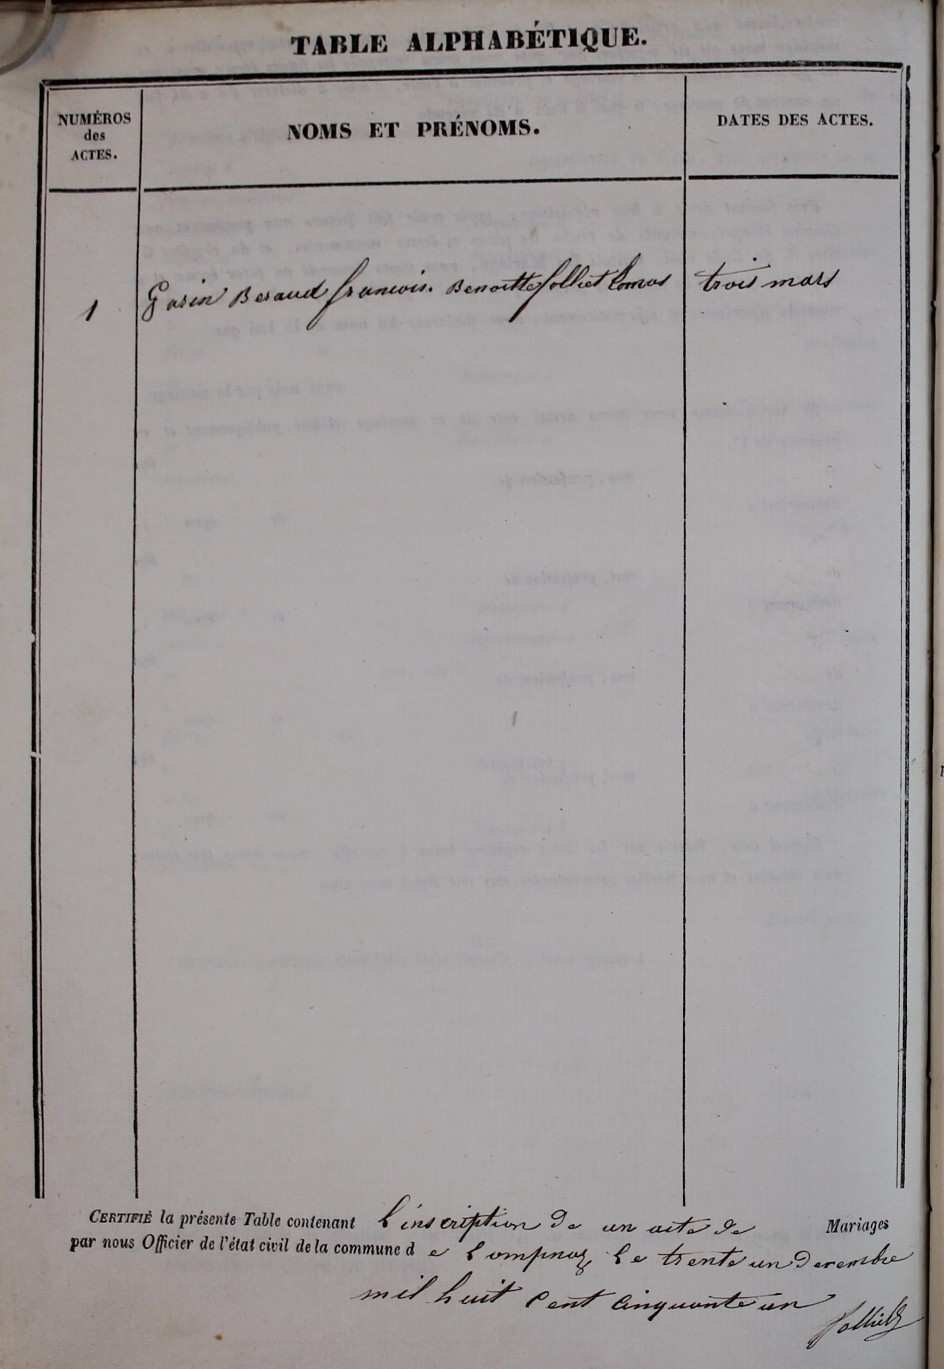 TABLE ALPHABÉTIQUE.
NUMÉROS
des
ACTES.
NOMS ET PRÉNOMS.
DATES DES ACTES.
1 Gorin Beraud francois. Benoitte folliet Comas trois mars
CERTIFIÉ la présente Table contenant l'inscription de un acte de Mariages
par nous Officier de l'état civil de la commune d e Lompnaz le trente un decembre
mil huit cent cinquante un
folliet